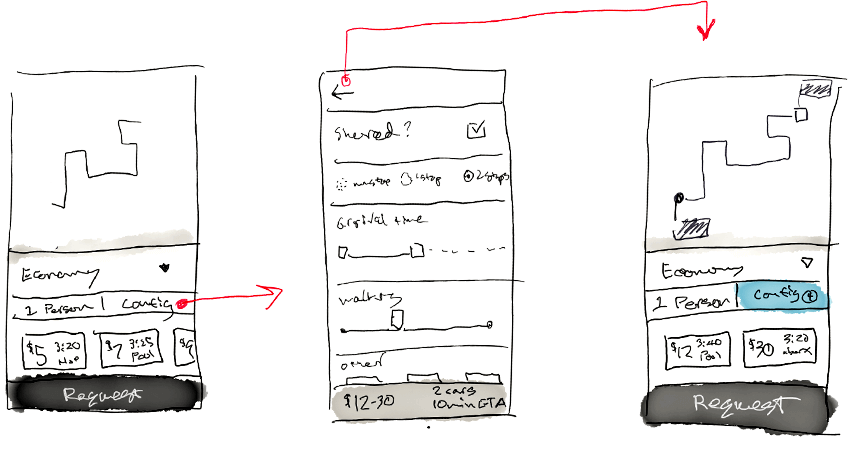 Economy
1 Person | Config
$5 3:20 Hop
$7 3:25 Pool
$9
Request
Shared?
nonstop 1 stop 2 stops
arrival time
walking
other
$12-30 2 cars
10min ETA
Economy
1 Person Config
$12 3:40 Pool
$30 3:20 uberX
Request